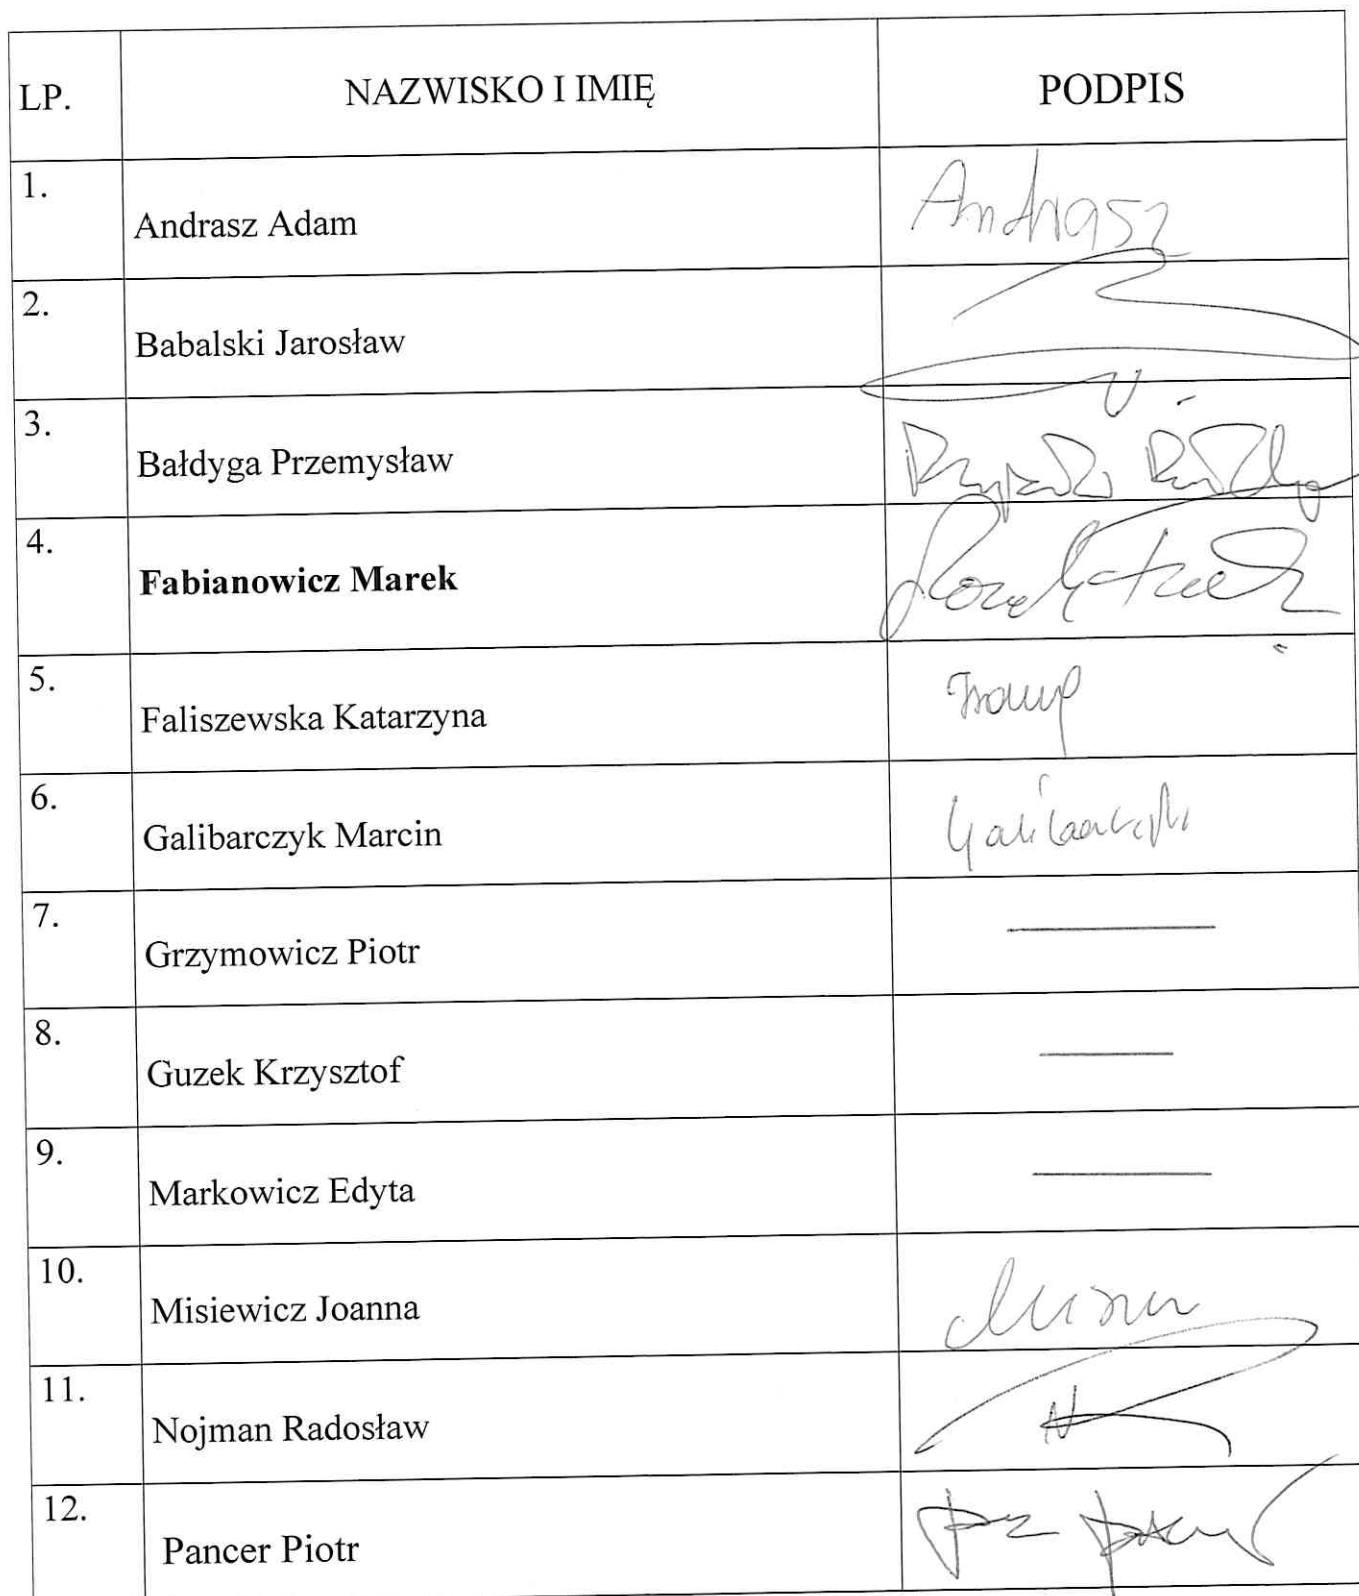 LP. NAZWISKO I IMIĘ PODPIS
1. Andrasz Adam Andrasz
2. Babalski Jarosław
3. Bałdyga Przemysław
4. Fabianowicz Marek
5. Faliszewska Katarzyna
6. Galibarczyk Marcin
7. Grzymowicz Piotr —
8. Guzek Krzysztof —
9. Markowicz Edyta —
10. Misiewicz Joanna
11. Nojman Radosław
12. Pancer Piotr